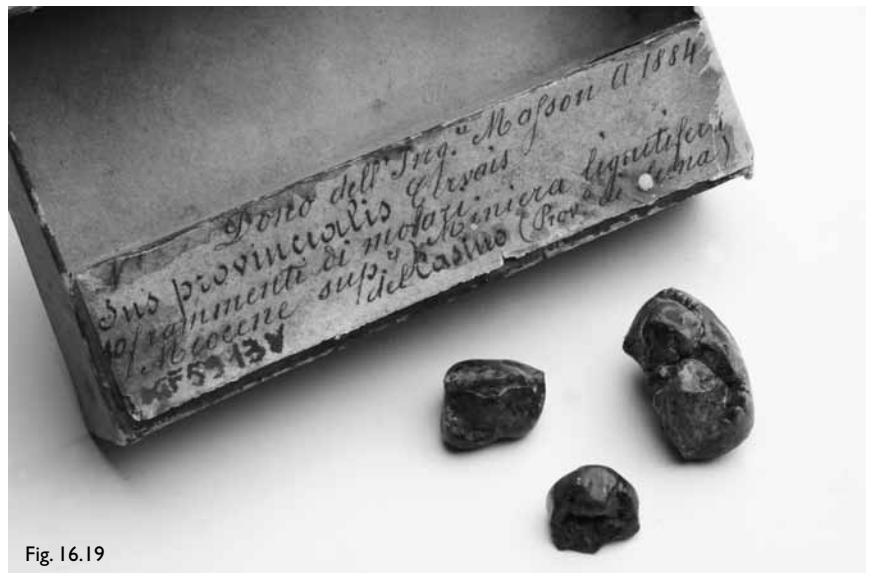 Dono dell'Ing.e Masson A 1884
Sus provincialis Gervais
frammenti di molari.
Miocene sup.e Miniera lignitifera
del Casino (Prov.a di Siena)
IGF5913V
Fig. 16.19